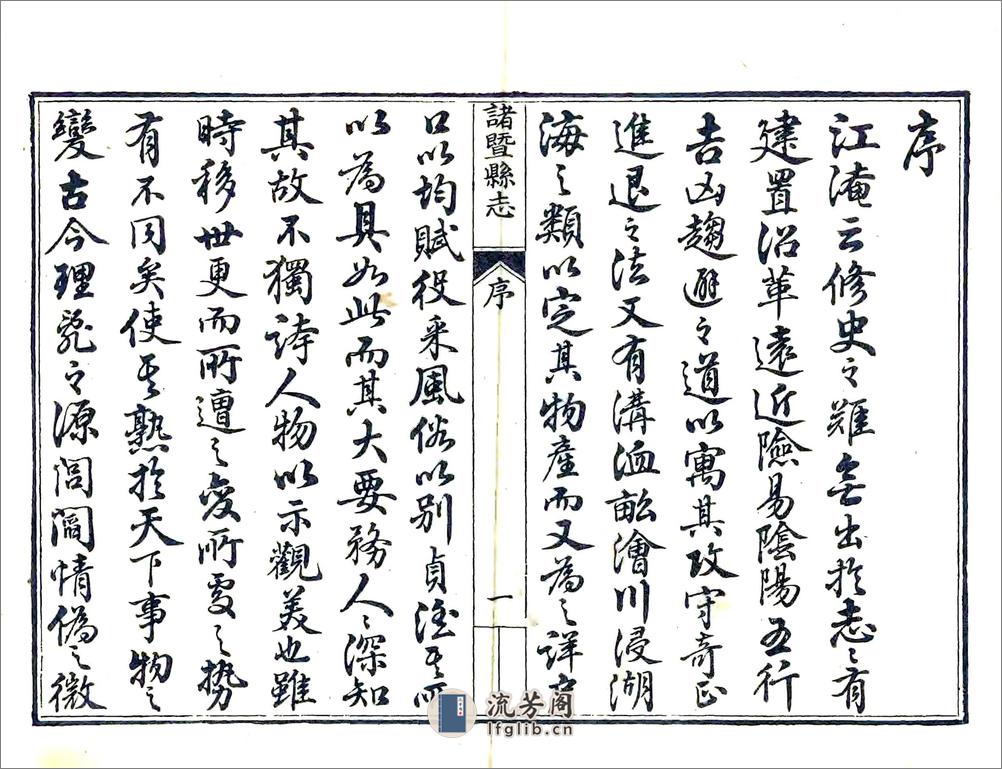 序
江淹云修史之難無出於志志有
建置沿革遠近險易陰陽五行
吉凶趨避之道以寓其攻守奇正
進退之法又有溝洫畝澮川浸湖
海之類以定其物產而又為之詳戶
諸暨縣志
序
一
口以均賦役采風俗以別貞淫其所
以為具如此而其大要務人人深知
其故不獨誇人物以示觀美也雖
時移世更而所遭之變所處之勢
有不同矣使其熟於天下事物之
變古今理亂之源閭閻情偽之微
流芳阁
lfglib.cn